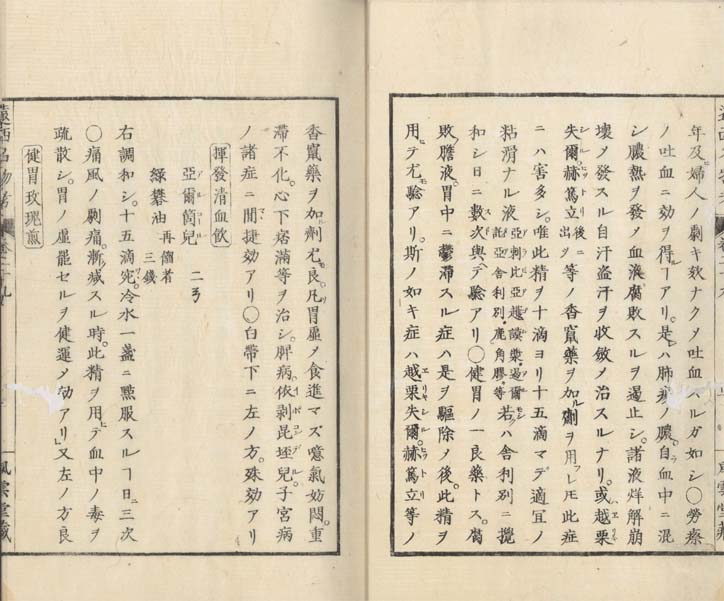 年及ビ婦人ノ劇キ欬ナクノ吐血スルガ如シ〇勞瘵
ノ吐血ニ効ヲ得ルヿアリ。是レハ肺勞ノ膿。自ラ血中ニ混
シ膿熱ヲ發ノ血液腐敗スルヲ遏止シ。諸液烊解崩
壞ノ發スル自汗盗汗ヲ收斂ノ治スルナリ。或ハ越栗
失爾。赫篤立 後ニ出ヅ 等ノ香竄藥ヲ加ル劑ヲ用フレ𪜈此症
ニハ害多シ。唯此精ヲ十滴ヨリ十五滴マデ適宜ノ
粘滑ナル液 亞剌比亞 舍利別鹿角膠等 若クハ舍利別ニ攪
和シ日ニ數次與ヘテ驗アリ〇健胃ノ一良藥トス。腐
敗膽液。胃中ニ鬱滯スル症ハ是ヲ驅除ノ後。此精ヲ
用ヒテ尤モ驗アリ。斯ノ如キ症ハ越栗失爾。赫篤立等ノ
香竄藥ヲ加ル劑尤モ良。凡ソ胃虛ノ食進マズ噫氣妨悶。重
滯不化。心下痞滿等ヲ治シ。脾病依剥昆垤兒。子宮病
ノ諸症ニ間捷効アリ〇白帶下ニ左ノ方。殊効アリ
揮發清血飲
亞爾箇兒 二ヲ
綠礬油 再餾者 三錢
右調和シ。十五滴宛。冷水一盞ニ點服スルヿ日ニ三次
〇痛風ノ劇痛。漸減スル時。此精ヲ用ヒテ血中ノ毒ヲ
疏散シ。胃ノ虛罷セルヲ健運ノ効アリ」又左ノ方良
健胃玫瑰煎
遠西名物考
風雲堂藏